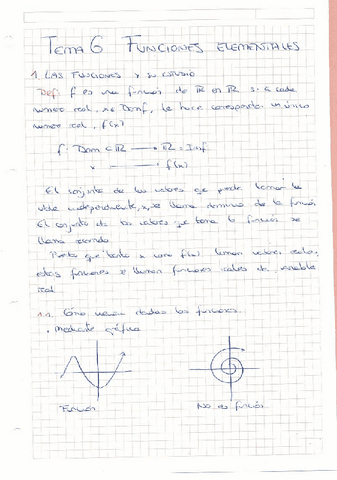 TEMA 6 FUNCIONES ELEMENTALES
1. LAS FUNCIONES Y SU ESTUDIO
Def. f es una función de ℝ en ℝ si a cada
número real, x∈Domf, le hace corresponder un único
número real, f(x)
f: Dom ⊂ ℝ ⟶ ℝ = Imf
x ⟶ f(x)
El conjunto de los valores que puede tomar la
vble independiente, x, se llama dominio de la función
El conjunto de los valores que toma la función se
llama recorrido.
Puesto que tanto x como f(x) toman valores reales,
estas funciones se llaman funciones reales de variable
real
1.1. Cómo vienen dadas las funciones.
• Mediante gráfica
Función
No es función